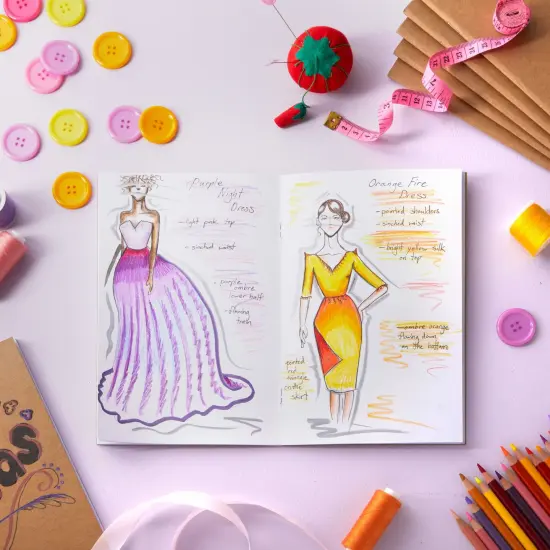 Purple
Night
Dress
-light pink top
-sinched waist
-purple
ombre
lower half
-flowing
Orange Fire
Dress
-pointed shoulders
-sinched waist
-bright yellow silk
on top
-ombre orange
flowing down
the bottom
orange
skirt
as